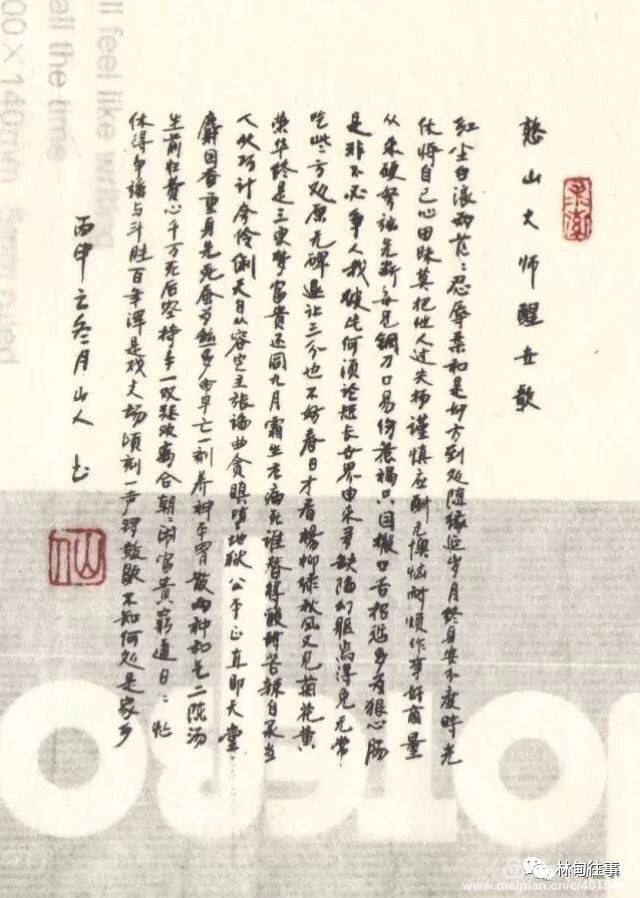 憨山大师醒世歌
红尘白浪两茫:忍辱柔和是妙方到处随缘延岁月终身安分度时光
休将自己心田昧莫把他人过失扬谨慎应酬无懊恼耐烦作事好商量
从来硬弩弦先断每见钢刀口易伤惹祸只因搬口舌招愆多为狠心肠
是非不必争人我彼此何须论短长世界由来多缺陷幻躯焉得免无常
吃些亏处原无碍退让三分也不妨春日才看杨柳绿秋风又见菊花黄
荣华终是三更梦富贵还同九月霜生老病死谁替得酸甜苦辣自承当
人从巧计夸伶俐天自从容定主张谄曲贪瞋堕地狱公平正直即天堂
麝因香重身先死蚕为丝多命早亡一剂养神平胃散两种和气二陈汤
生前枉费心千万死后空持手一双悲欢离合朝:闹富贵穷通日:忙
休得争强与斗胜百年浑是戏文场顷刻一声锣鼓歇不知何处是家乡
丙申 月山人 书
ll feel like writing
all the time
00×140mm
ruled
林甸往事
www.meipian.cn/c/4015